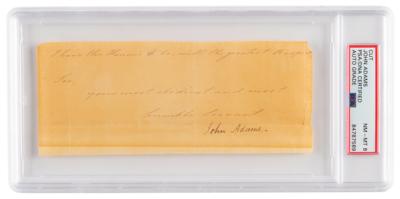 I have the Honour to be, with the greatest Respect
Sir
your most obedient and most
humble Servant
John Adams.
CUT
JOHN ADAMS
PSA/DNA CERTIFIED
AUTO GRADE
NM - MT 8
84787569